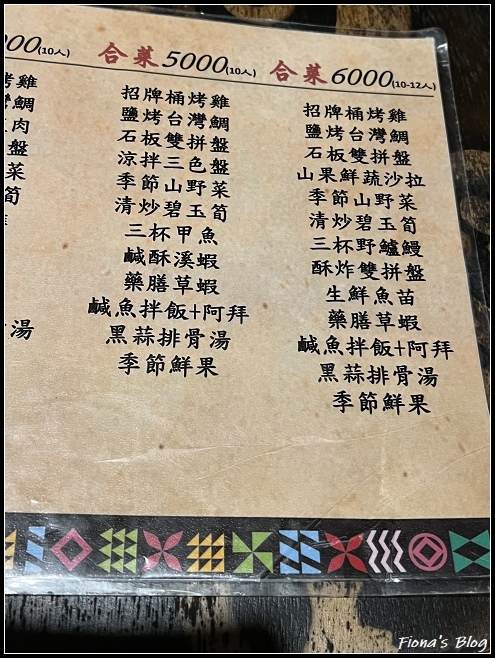 000(10人)
烤雞
灣鯛
肉
盤
菜
筍
湯
合菜5000(10人)
招牌桶烤雞
鹽烤台灣鯛
石板雙拼盤
涼拌三色盤
季節山野菜
清炒碧玉筍
三杯甲魚
鹹酥溪蝦
藥膳草蝦
鹹魚拌飯+阿拜
黑蒜排骨湯
季節鮮果
合菜6000(10-12人)
招牌桶烤雞
鹽烤台灣鯛
石板雙拼盤
山果鮮蔬沙拉
季節山野菜
清炒碧玉筍
三杯野鱸鰻
酥炸雙拼盤
生鮮魚苗
藥膳草蝦
鹹魚拌飯+阿拜
黑蒜排骨湯
季節鮮果
Fiona's Blog